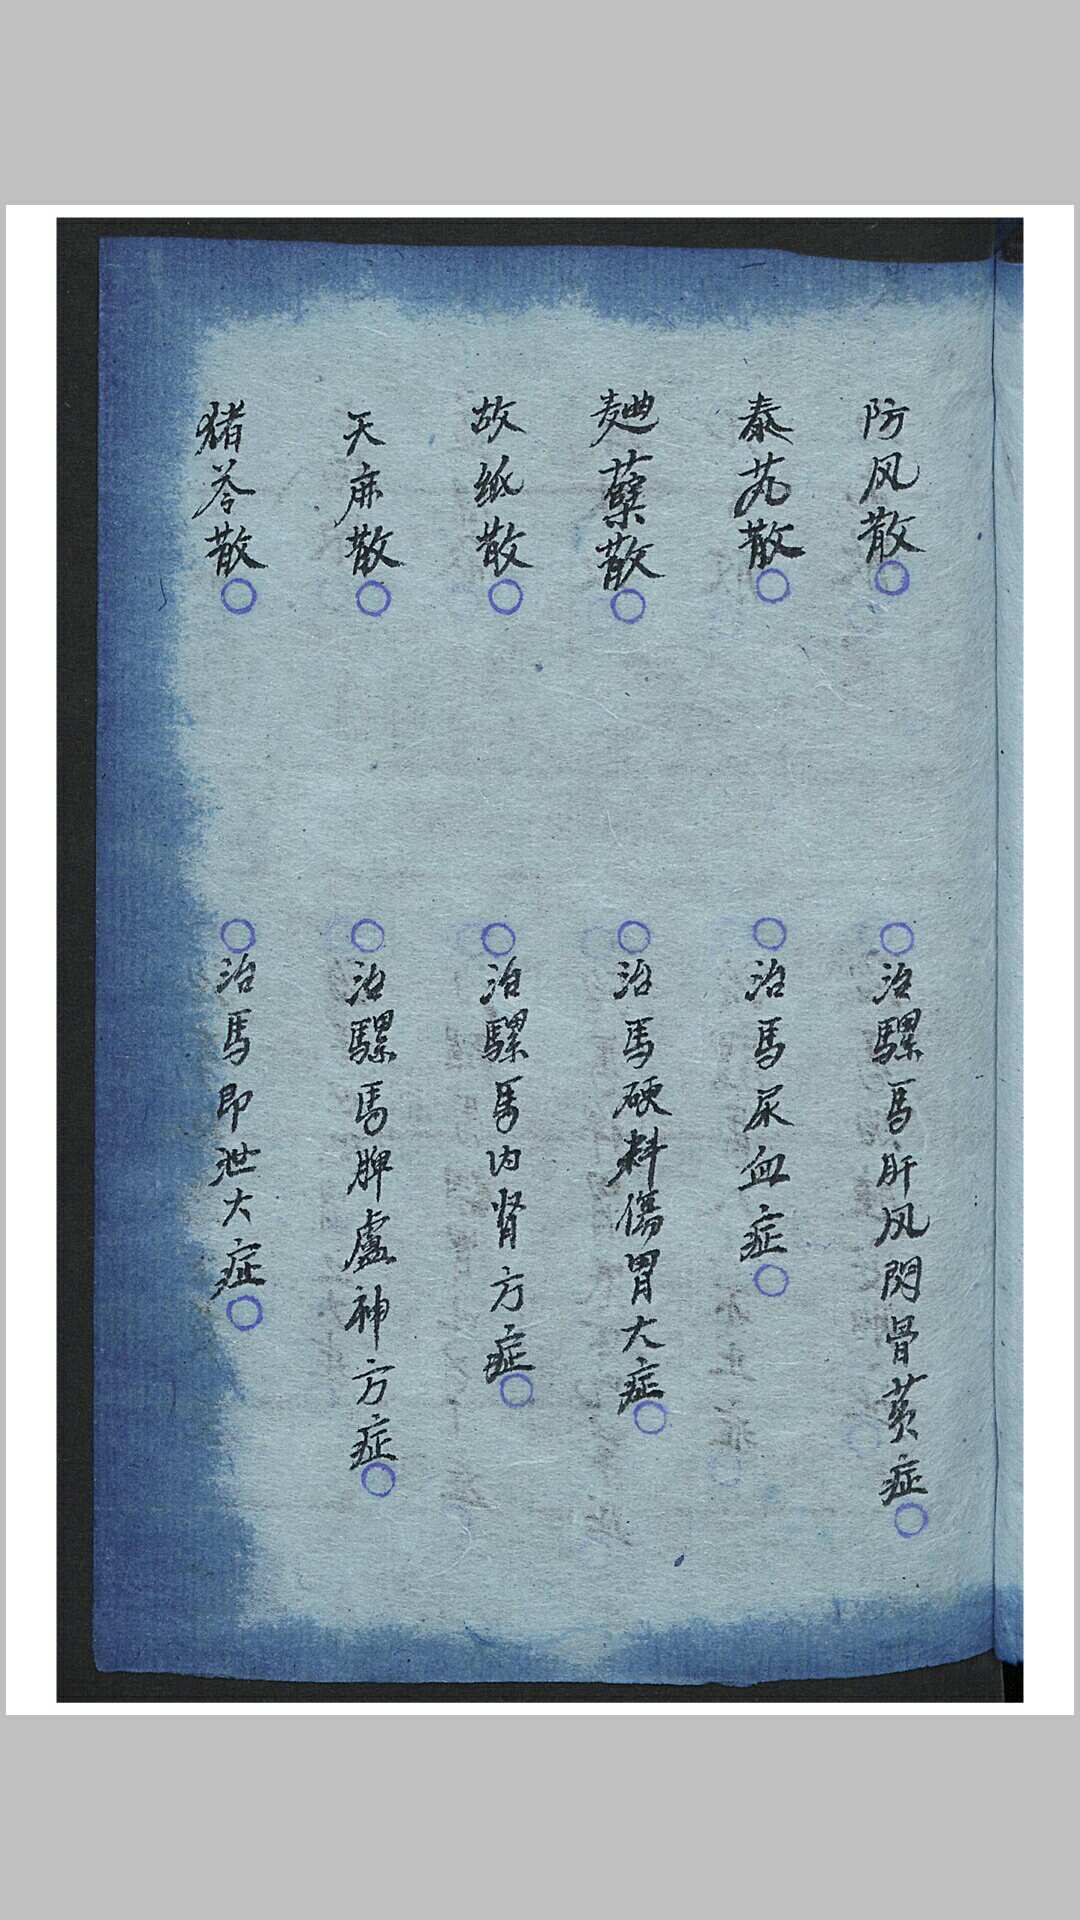 防风散　治騾馬肝风閃骨䓾症
秦艽散　治馬尿血症
麯蘖散　治馬硬料傷胃大症
故纸散　治騾馬内肾方症
天麻散　治騾馬脾虛神方症
猪苓散　治馬即泄大症